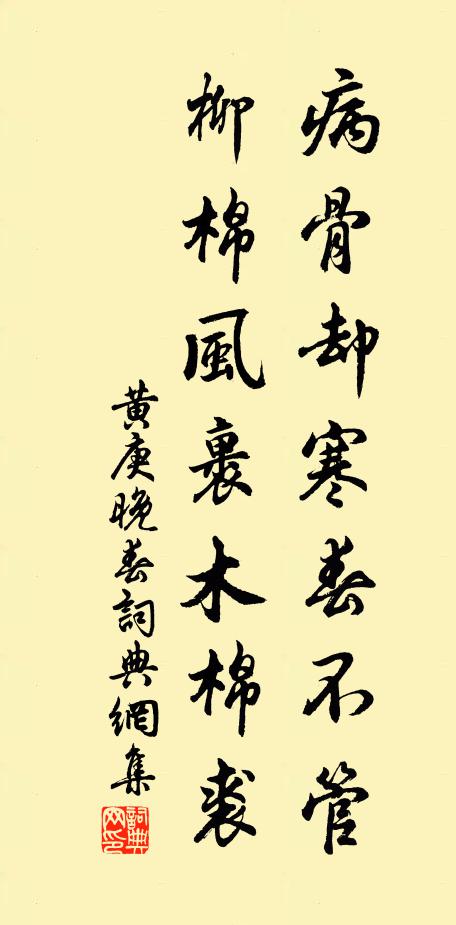 病骨却寒春不管
柳棉風裹木棉裘
黄庚晚春詞典網集
詞典網印